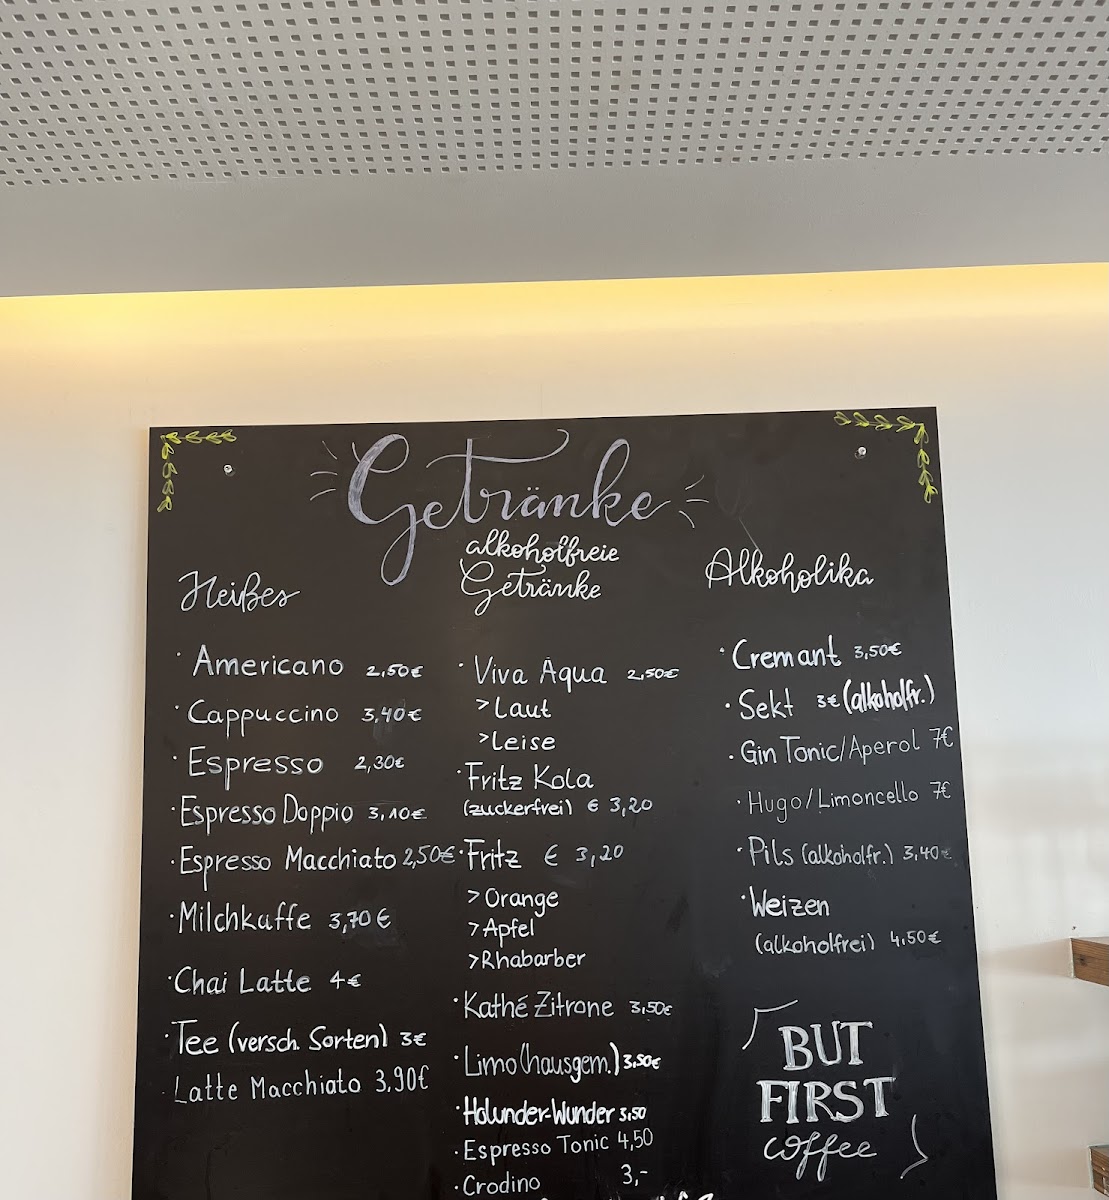 Getränke
Heißes
Americano 2,50€
Cappuccino 3,40€
Espresso 2,30€
Espresso Doppio 3,10€
Espresso Macchiato 2,50€
Milchkaffe 3,70€
Chai Latte 4€
Tee (versch. Sorten) 3€
Latte Macchiato 3,90€
alkoholfreie
Getränke
Viva Aqua 2,50€
> Laut
> Leise
Fritz Kola
(zuckerfrei) € 3,20
Fritz € 3,20
> Orange
> Apfel
> Rhabarber
Kathé Zitrone 3,50€
Limo (hausgem.) 3,50€
Holunder-Wunder 3,50
Espresso Tonic 4,50
Crodino 3,-
Alkoholika
Cremant 3,50€
Sekt 3€ (alkoholfr.)
Gin Tonic/Aperol 7€
Hugo/Limoncello 7€
Pils (alkoholfr.) 3,40€
Weizen
(alkoholfrei) 4,50€
BUT
FIRST
coffee